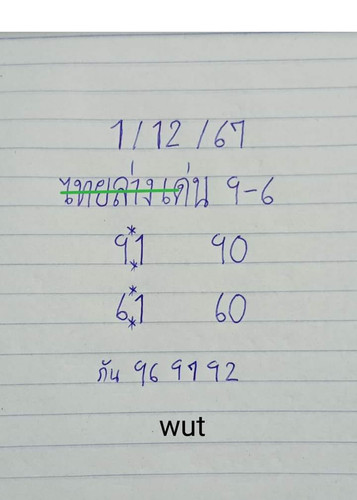 1/12/67
ไทยล่างเด่น 9-6
*
91 90
*
*
61 60
*
กัน 96 97 92
wut